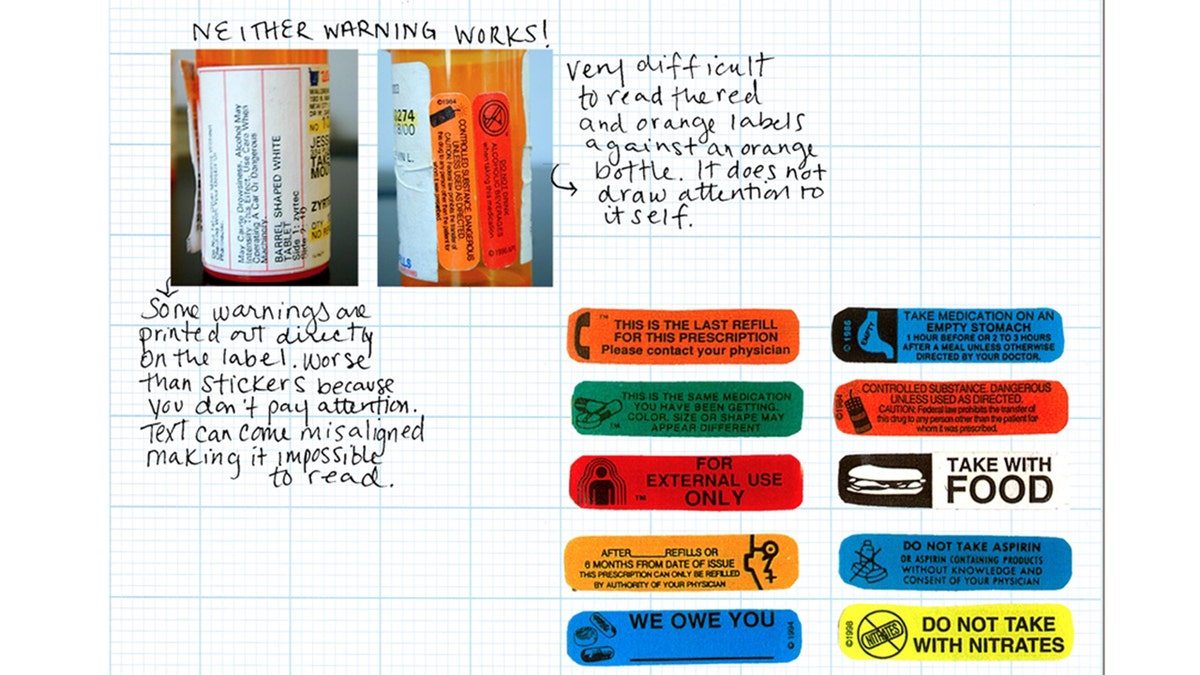 NEITHER WARNING WORKS!
May Cause Drowsiness. Alcohol May
Intensify This Effect. Use Care When
Operating A Car Or Dangerous
Machinery.
BARREL SHAPED WHITE
TABLET
Side 1: zyrtec
NO
JESS
TAKE
MOU
ZYRT
QTY
NO RE
0274
8/00
IN L.
LLS
©1994
CONTROLLED SUBSTANCE. DANGEROUS
UNLESS USED AS DIRECTED.
CAUTION: Federal law prohibits the transfer of
this drug to any person other than the patient for
whom it was
DO NOT DRINK
ALCOHOLIC BEVERAGES
when taking this medication
very difficult
to read the red
and orange labels
against an orange
bottle. It does not
draw attention to
itself.
Some warnings are
printed out directly
on the label. Worse
than stickers because
you don't pay attention.
Text can come misaligned
making it impossible
to read.
TM
THIS IS THE LAST REFILL
FOR THIS PRESCRIPTION
Please contact your physician
THIS IS THE SAME MEDICATION
YOU HAVE BEEN GETTING.
COLOR, SIZE OR SHAPE MAY
APPEAR DIFFERENT
TM
FOR
EXTERNAL USE
ONLY
TM
AFTER______REFILLS OR
6 MONTHS FROM DATE OF ISSUE
THIS PRESCRIPTION CAN ONLY BE REFILLED
BY AUTHORITY OF YOUR PHYSICIAN
WE OWE YOU
©1994
©1986
EMPTY
TAKE MEDICATION ON AN
EMPTY STOMACH
1 HOUR BEFORE OR 2 TO 3 HOURS
AFTER A MEAL UNLESS OTHERWISE
DIRECTED BY YOUR DOCTOR.
©1994
CONTROLLED SUBSTANCE. DANGEROUS
UNLESS USED AS DIRECTED.
CAUTION: Federal law prohibits the transfer of
this drug to any person other than the patient for
whom it was prescribed.
TAKE WITH
FOOD
DO NOT TAKE ASPIRIN
OR ASPIRIN CONTAINING PRODUCTS
WITHOUT KNOWLEDGE AND
CONSENT OF YOUR PHYSICIAN
©1998
NITRATES
DO NOT TAKE
WITH NITRATES